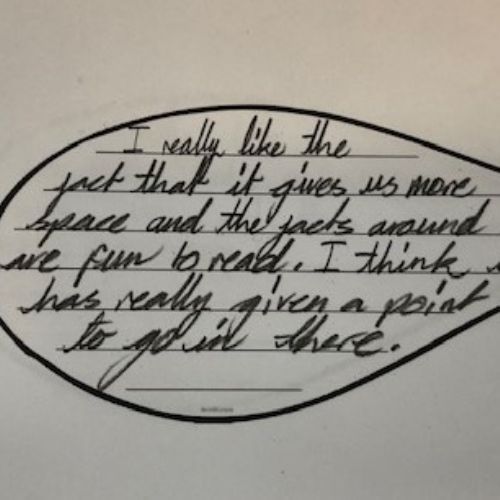 I really like the
fact that it gives us more
space and the facts around
are fun to read. I think
has really given a point
to go in there.